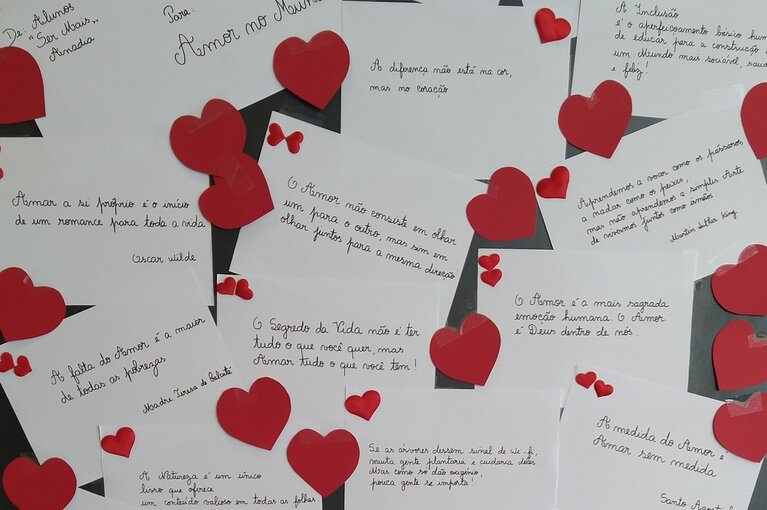 De: Alunos
"Ser Mais"
Anadia
Para:
Amor no
A diferença não está na cor,
mas no coração
A Inclusão
é o aperfeiçoamento básico
de educar para a construção
um Mundo mais sociável,
e feliz!
Amar a si próprio é o início
de um romance para toda a vida
Oscar Wilde
O Amor não consiste em olhar
um para o outro, mas sim em
olhar juntos para a mesma direção
Aprendemos a voar como os pássaros,
a nadar como os peixes,
mas não aprendemos a simples Arte
de vivermos juntos como irmãos
Martin Luther King
A falta do Amor é a maior
de todas as pobrezas
Madre Teresa de Calcutá
O Segredo da Vida não é ter
tudo o que você quer, mas
Amar tudo o que você tem!
O Amor é a mais sagrada
emoção humana. O Amor
é Deus dentro de nós.
A Natureza é um único
livro que oferece
um conteúdo valioso em todas as folhas.
Se as árvores dessem sinal de wi-fi,
muita gente plantaria e cuidaria delas.
Mas como só dão oxigénio,
pouca gente se importa!
A medida do Amor é
Amar sem medida
Santo